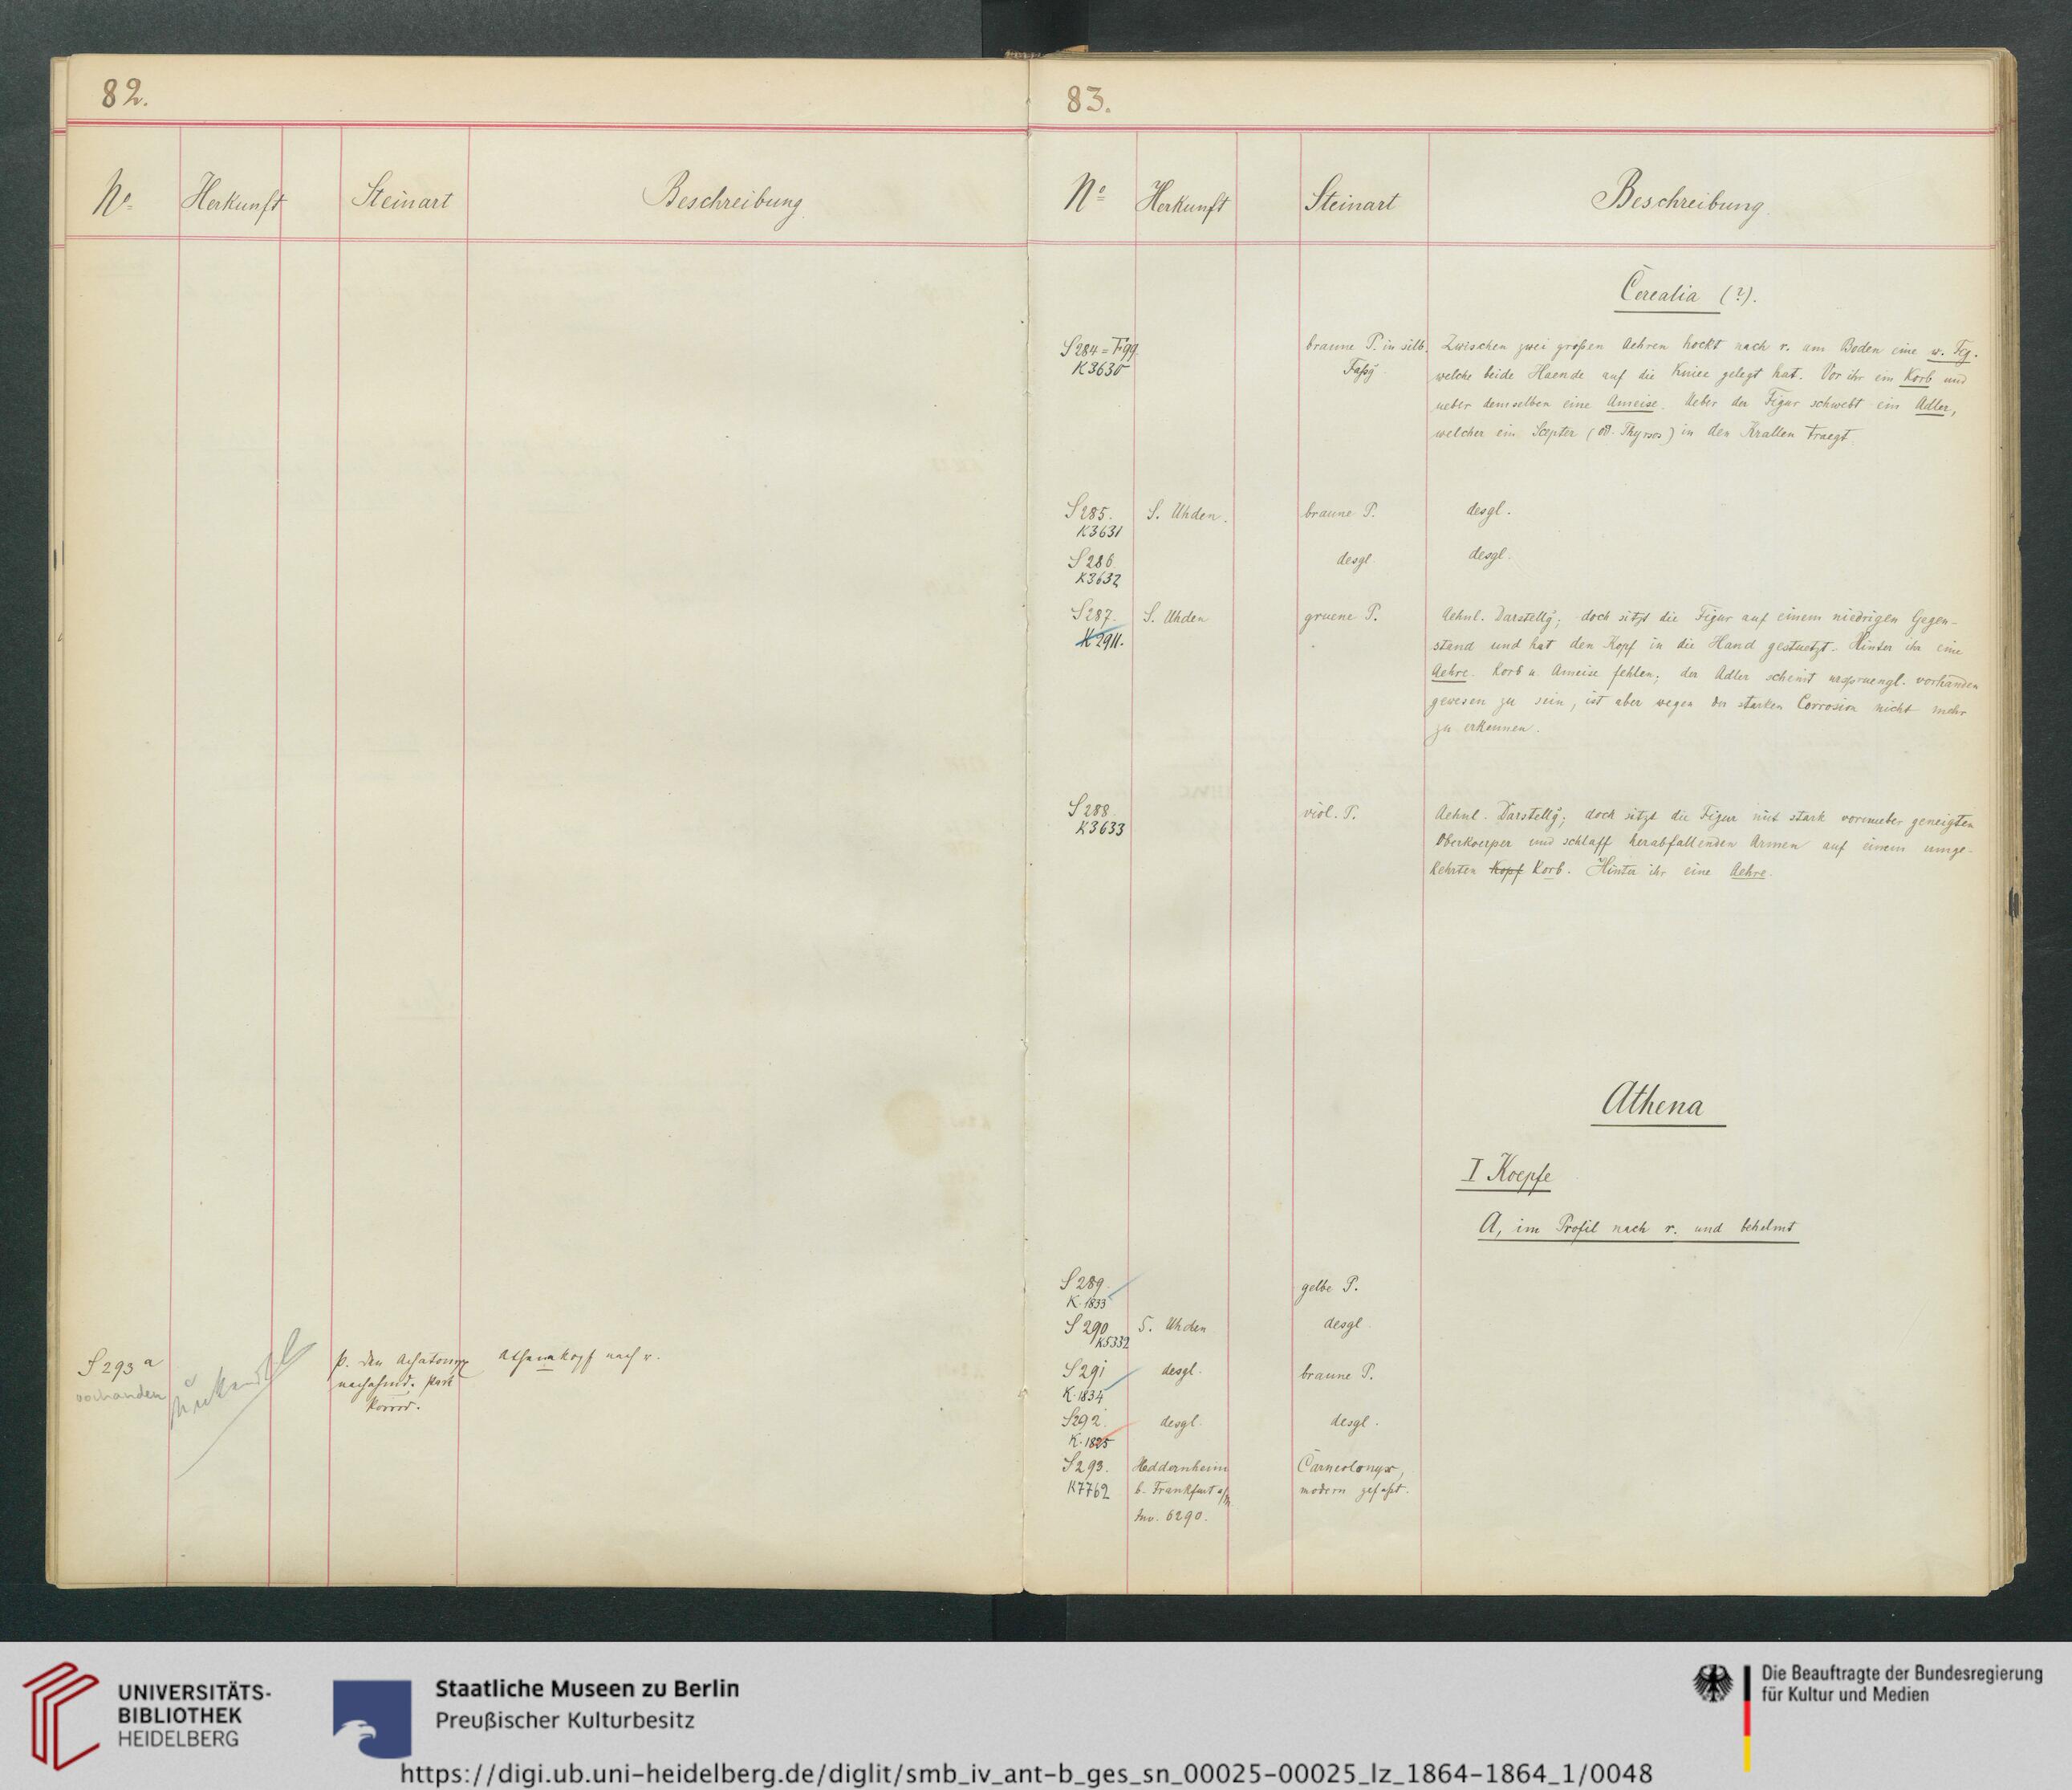 82.
No. Herkunft Steinart Beschreibung
S 293 a p. den Achatonyx Athenakopf nach r.
vorhanden nachahmd. stark
korrod.
83.
No. Herkunft Steinart Beschreibung
Cerealia (?).
S 284 = F 99 braune P. in silb. Zwischen zwei großen Aehren hockt nach r. am Boden eine w. Fg.
K 3630 Faßg. welche beide Haende auf die Kniee gelegt hat. Vor ihr ein Korb und
ueber demselben eine Ameise. Ueber der Figur schwebt ein Adler,
welcher ein Scepter (od. Thyrsos) in den Krallen traegt.
S 285. S. Uhden. braune P. desgl.
K 3631
S 286 desgl. desgl.
K 3632
S 287. S. Uhden gruene P. Aehnl. Darstellg; doch sitzt die Figur auf einem niedrigen Gegen-
K 2911. stand und hat den Kopf in die Hand gestuetzt. Hinter ihr eine
Aehre. Korb u. Ameise fehlen; der Adler scheint urspruengl. vorhanden
gewesen zu sein, ist aber wegen der starken Corrosion nicht mehr
zu erkennen.
S 288. viol. P. Aehnl. Darstellg; doch sitzt die Figur mit stark vornueber geneigten
K 3633 Oberkoerper und schlaff herabfallenden Armen auf einem umge-
kehrten Kopf Korb. Hinter ihr eine Aehre.
Athena
I Koepfe
A, im Profil nach r. und behelmt
S 289. gelbe P.
K. 1833
S 290 S. Uhden desgl.
K 5332
S 291 desgl. braune P.
K. 1834
S 292. desgl. desgl.
K. 1825
S 293. Heddernheim Carneolonyx,
K 7762 b. Frankfurt a/M. modern gefaßt.
Inv. 6290.
UNIVERSITÄTS-
BIBLIOTHEK
HEIDELBERG
Staatliche Museen zu Berlin
Preußischer Kulturbesitz
Die Beauftragte der Bundesregierung
für Kultur und Medien
https://digi.ub.uni-heidelberg.de/diglit/smb_iv_ant-b_ges_sn_00025-00025_lz_1864-1864_1/0048